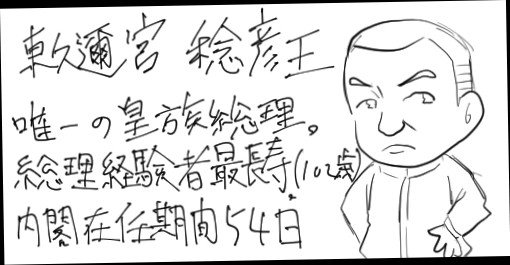 東久邇宮 稔彦王
唯一の皇族総理。
総理経験者最長寿(102歳)
内閣在任期間54日